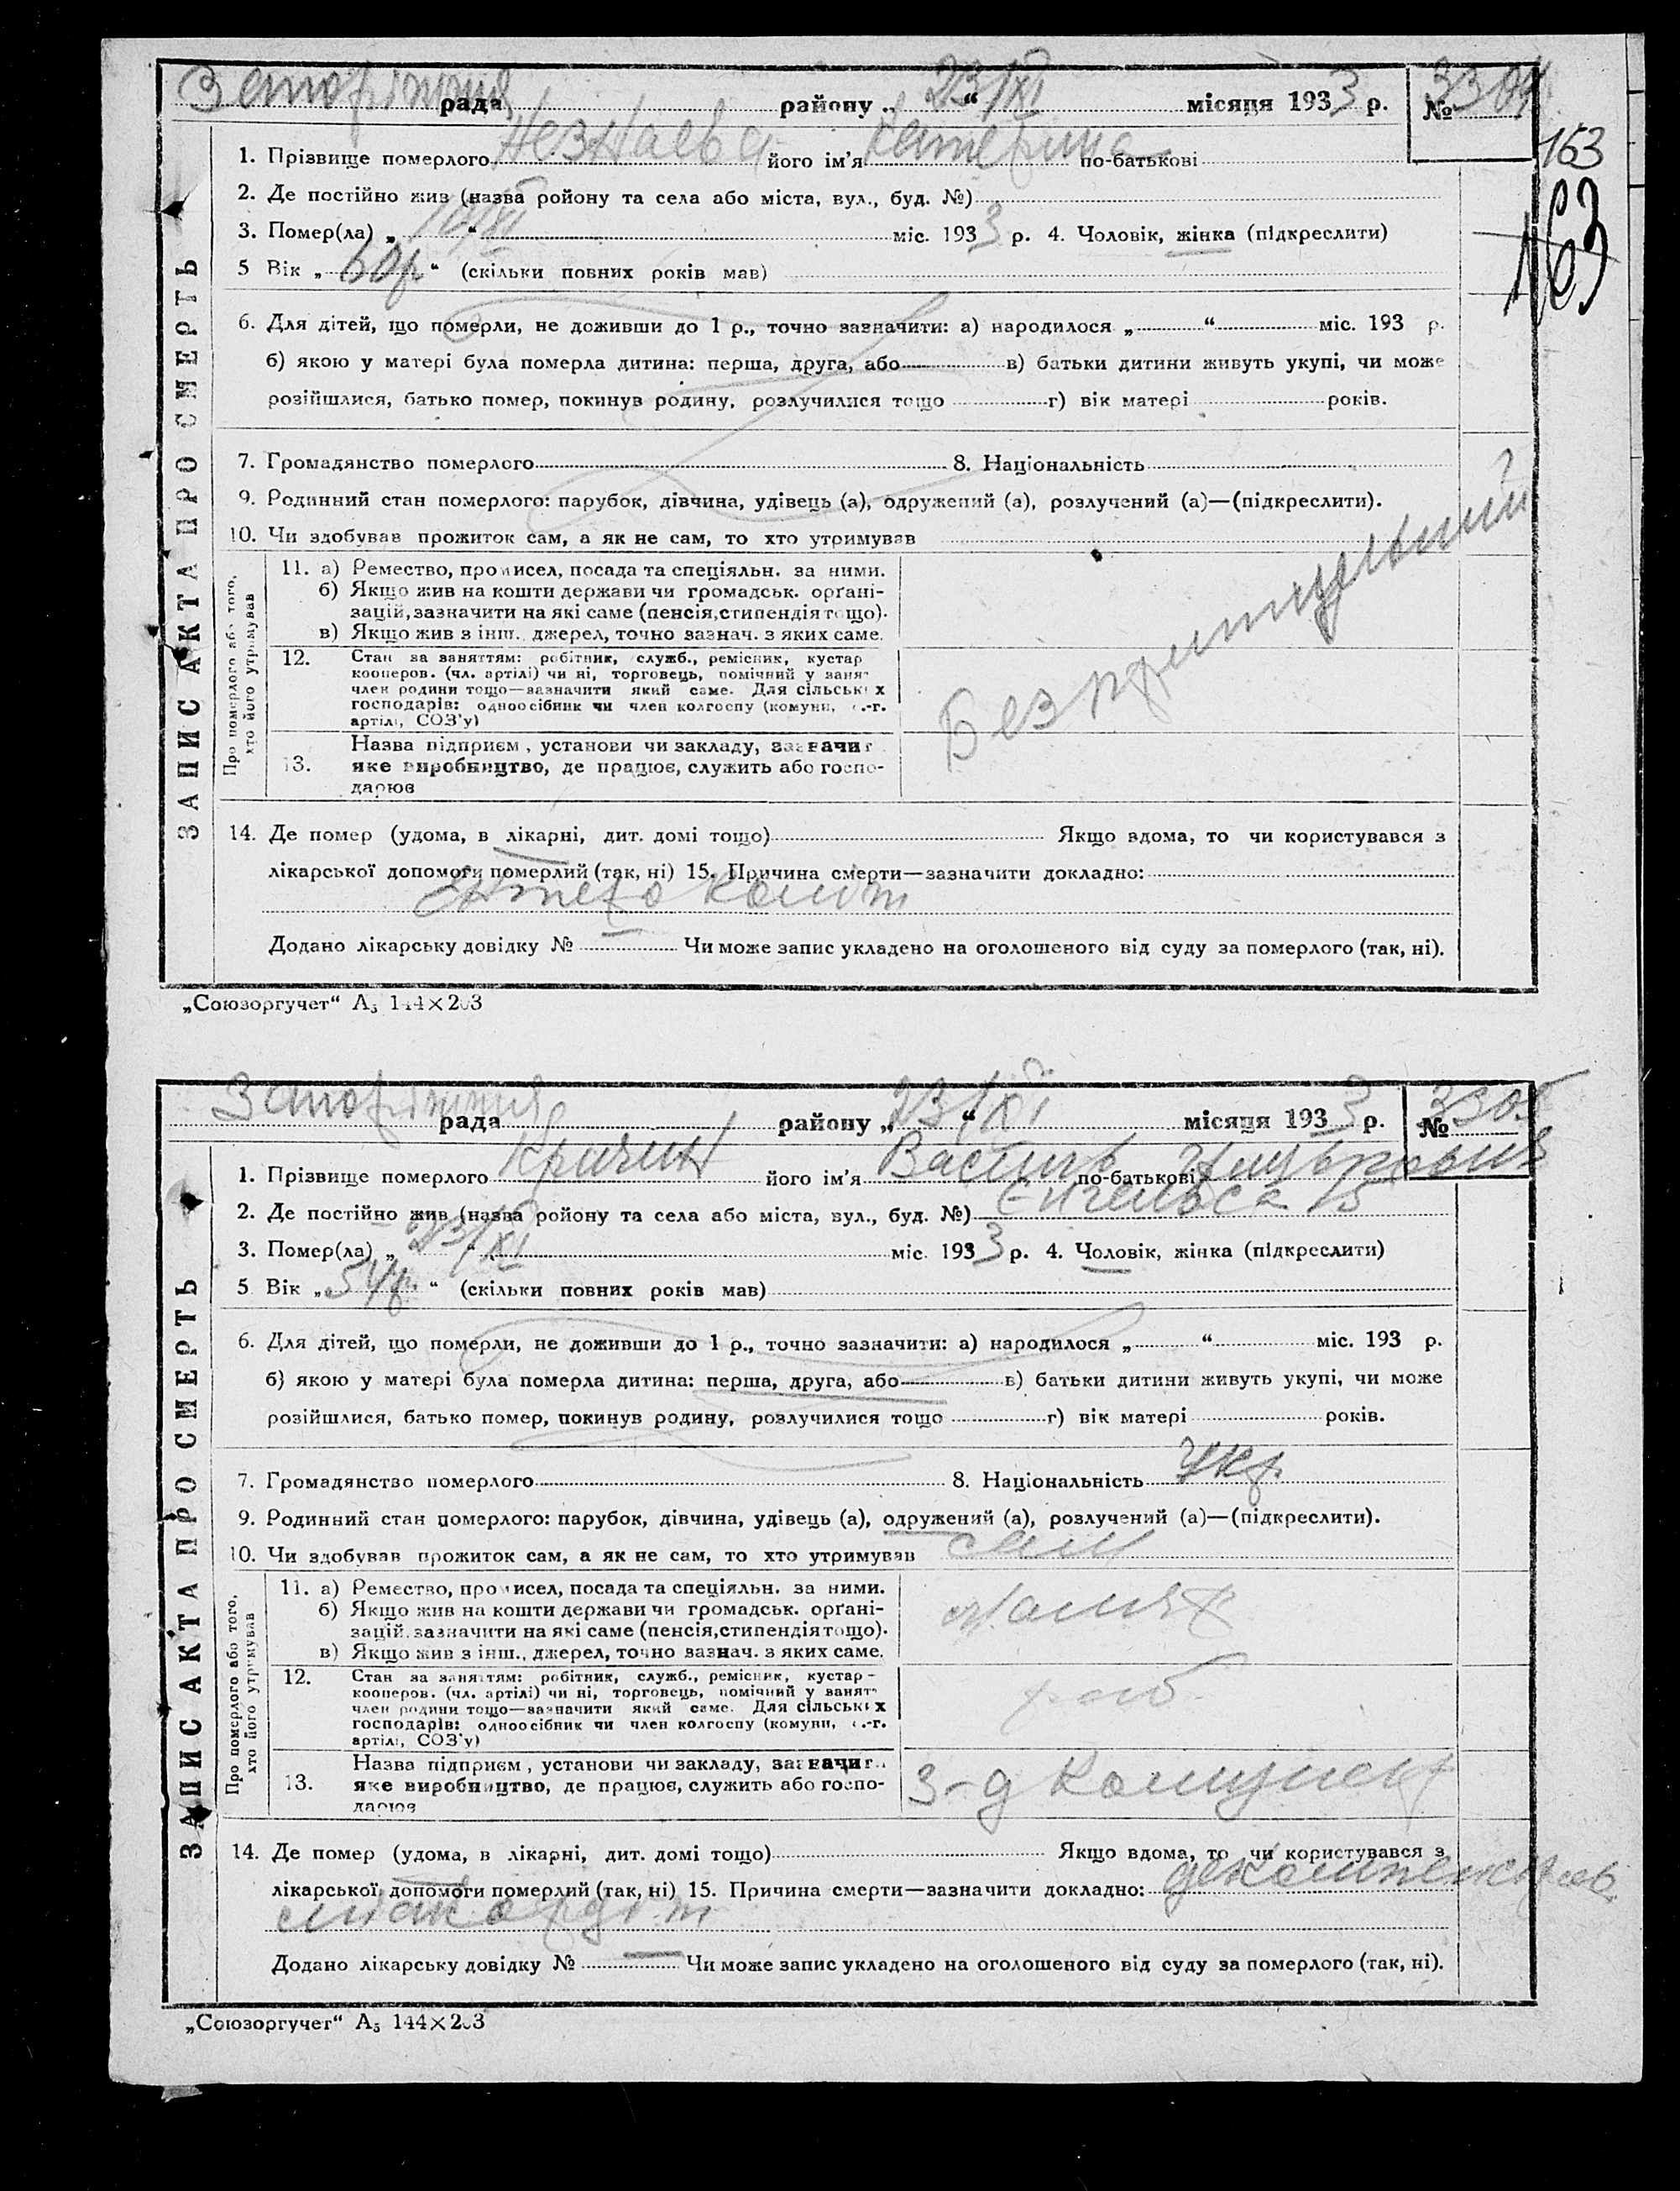 Запоріжжя рада району „ 23/XI “ місяця 1933 р. № 3304
163
163
1. Прізвище померлого Незнаєва його ім'я Катерина по-батькові
2. Де постійно жив (назва ройону та села або міста, вул., буд. №)
3. Помер(ла) „ “ міс. 1933 р. 4. Чоловік, жінка (підкреслити)
5 Вік „ 60 р “ (скільки повних років мав)
6. Для дітей, що померли, не доживши до 1 р., точно зазначити: а) народилося „ “ міс. 193 р.
б) якою у матері була померла дитина: перша, друга, або в) батьки дитини живуть укупі, чи може
розійшлися, батько помер, покинув родину, розлучилися тощо г) вік матері років.
7. Громадянство померлого 8. Національність
9. Родинний стан померлого: парубок, дівчина, удівець (а), одружений (а), розлучений (а)—(підкреслити).
10. Чи здобував прожиток сам, а як не сам, то хто утримував
ЗАПИС АКТА ПРО СМЕРТЬ
Про померлого або того, хто його утримував
11. а) Ремество, промисел, посада та спеціяльн. за ними.
б) Якщо жив на кошти держави чи громадськ. орґані-
зацій, зазначити на які саме (пенсія, стипендія тощо).
в) Якщо жив з інш. джерел, точно зазнач. з яких саме.
12. Стан за заняттям: робітник, служб., ремісник, кустар
кооперов. (чл. артілі) чи ні, торговець, помічний у занят
член родини тощо—зазначити який саме. Для сільських
господарів: одноосібник чи член колгоспу (комуни, с.-г.
артілі, СОЗ'у)
13. Назва підприєм, установи чи закладу, зазначит
яке виробництво, де працює, служить або госпо-
дарює
14. Де помер (удома, в лікарні, дит. домі тощо) Якщо вдома, то чи користувався з
лікарської допомоги померлий (так, ні) 15. Причина смерти—зазначити докладно:
Ентероколіт
Додано лікарську довідку № Чи може запис укладено на оголошеного від суду за померлого (так, ні).
„Союзоргучет“ А5 144×203
Запоріжжя рада району „ 23/XI “ місяця 1933 р. № 3305
1. Прізвище померлого Кричин його ім'я Василь по-батькові
2. Де постійно жив (назва ройону та села або міста, вул., буд. №) Енгельса 15
3. Помер(ла) „ 23/XI “ міс. 1933 р. 4. Чоловік, жінка (підкреслити)
5 Вік „ 54 р. “ (скільки повних років мав)
6. Для дітей, що померли, не доживши до 1 р., точно зазначити: а) народилося „ “ міс. 193 р.
б) якою у матері була померла дитина: перша, друга, або в) батьки дитини живуть укупі, чи може
розійшлися, батько помер, покинув родину, розлучилися тощо г) вік матері років.
7. Громадянство померлого 8. Національність Укр.
9. Родинний стан померлого: парубок, дівчина, удівець (а), одружений (а), розлучений (а)—(підкреслити).
10. Чи здобував прожиток сам, а як не сам, то хто утримував сам
ЗАПИС АКТА ПРО СМЕРТЬ
Про померлого або того, хто його утримував
11. а) Ремество, промисел, посада та спеціяльн. за ними. маляр
б) Якщо жив на кошти держави чи громадськ. орґані-
зацій, зазначити на які саме (пенсія, стипендія тощо).
в) Якщо жив з інш., джерел, точно зазнач. з яких саме.
12. Стан за заняттям: робітник, служб., ремісник, кустар -
кооперов. (чл. артілі) чи ні, торговець, помічний у занят
член родини тощо—зазначити який саме. Для сільських
господарів: одноосібник чи член колгоспу (комуни, с.-г.
артілі, СОЗ'у)
роб
13. Назва підприєм, установи чи закладу, зазначит
яке виробництво, де працює, служить або госпо-
дарює
З-д Комунар
14. Де помер (удома, в лікарні, дит. домі тощо) Якщо вдома, то чи користувався з
лікарської допомоги померлий (так, ні) 15. Причина смерти—зазначити докладно:
міокордіт
Додано лікарську довідку № — Чи може запис укладено на оголошеного від суду за померлого (так, ні).
„Союзоргучет“ А5 144×203